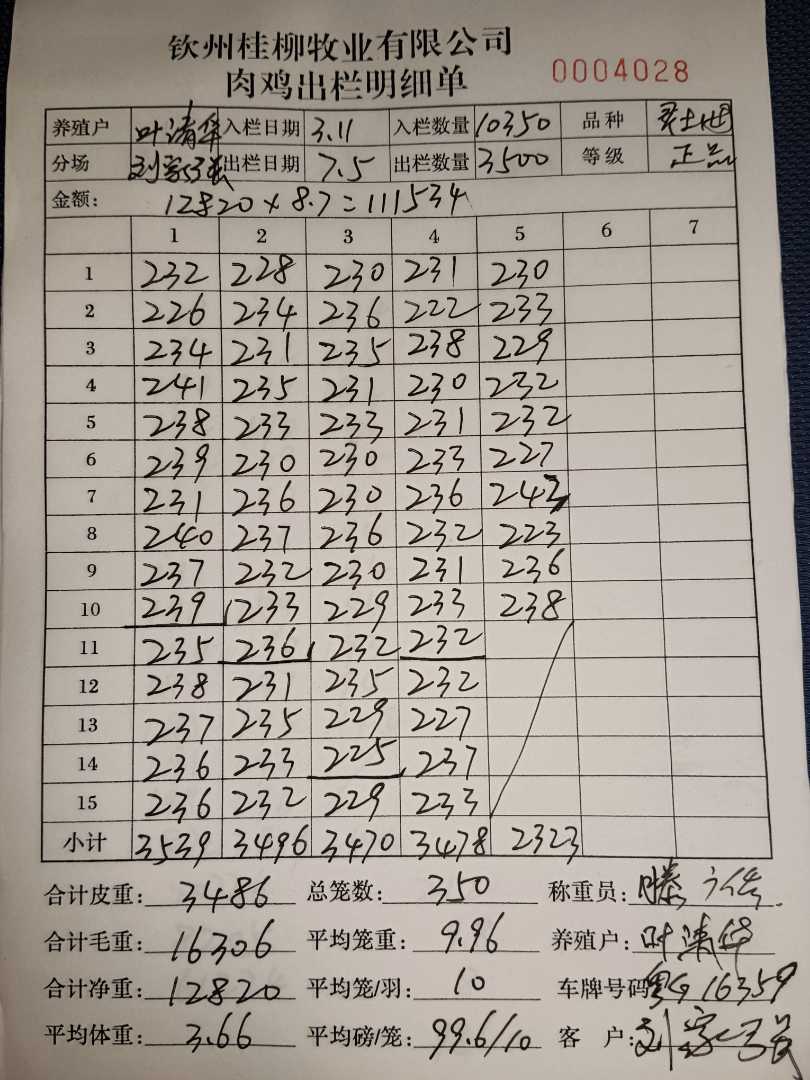 钦州桂柳牧业有限公司
肉鸡出栏明细单 0004028
养殖户 叶清华 入栏日期 3.11 入栏数量 10350 品种
分场 出栏日期 7.5 出栏数量 3500 等级 正品
金额: 12820×8.7=111534
1 2 3 4 5 6 7
1 232 228 230 231 230
2 226 234 236 222 233
3 234 231 235 238 229
4 241 235 231 230 232
5 238 233 233 231 232
6 239 230 230 233 227
7 231 236 230 236 243
8 240 237 236 232 223
9 237 232 230 231 236
10 239 233 229 233 238
11 235 236 232 232
12 238 231 235 232
13 237 235 229 227
14 236 233 225 237
15 236 232 229 233
小计 3539 3496 3470 3478 2323
合计皮重: 3486 总笼数: 350 称重员:
合计毛重: 16306 平均笼重: 9.96 养殖户: 叶清华
合计净重: 12820 平均笼/羽: 10 车牌号码 粤G16359
平均体重: 3.66 平均磅/笼: 99.6/10 客 户: